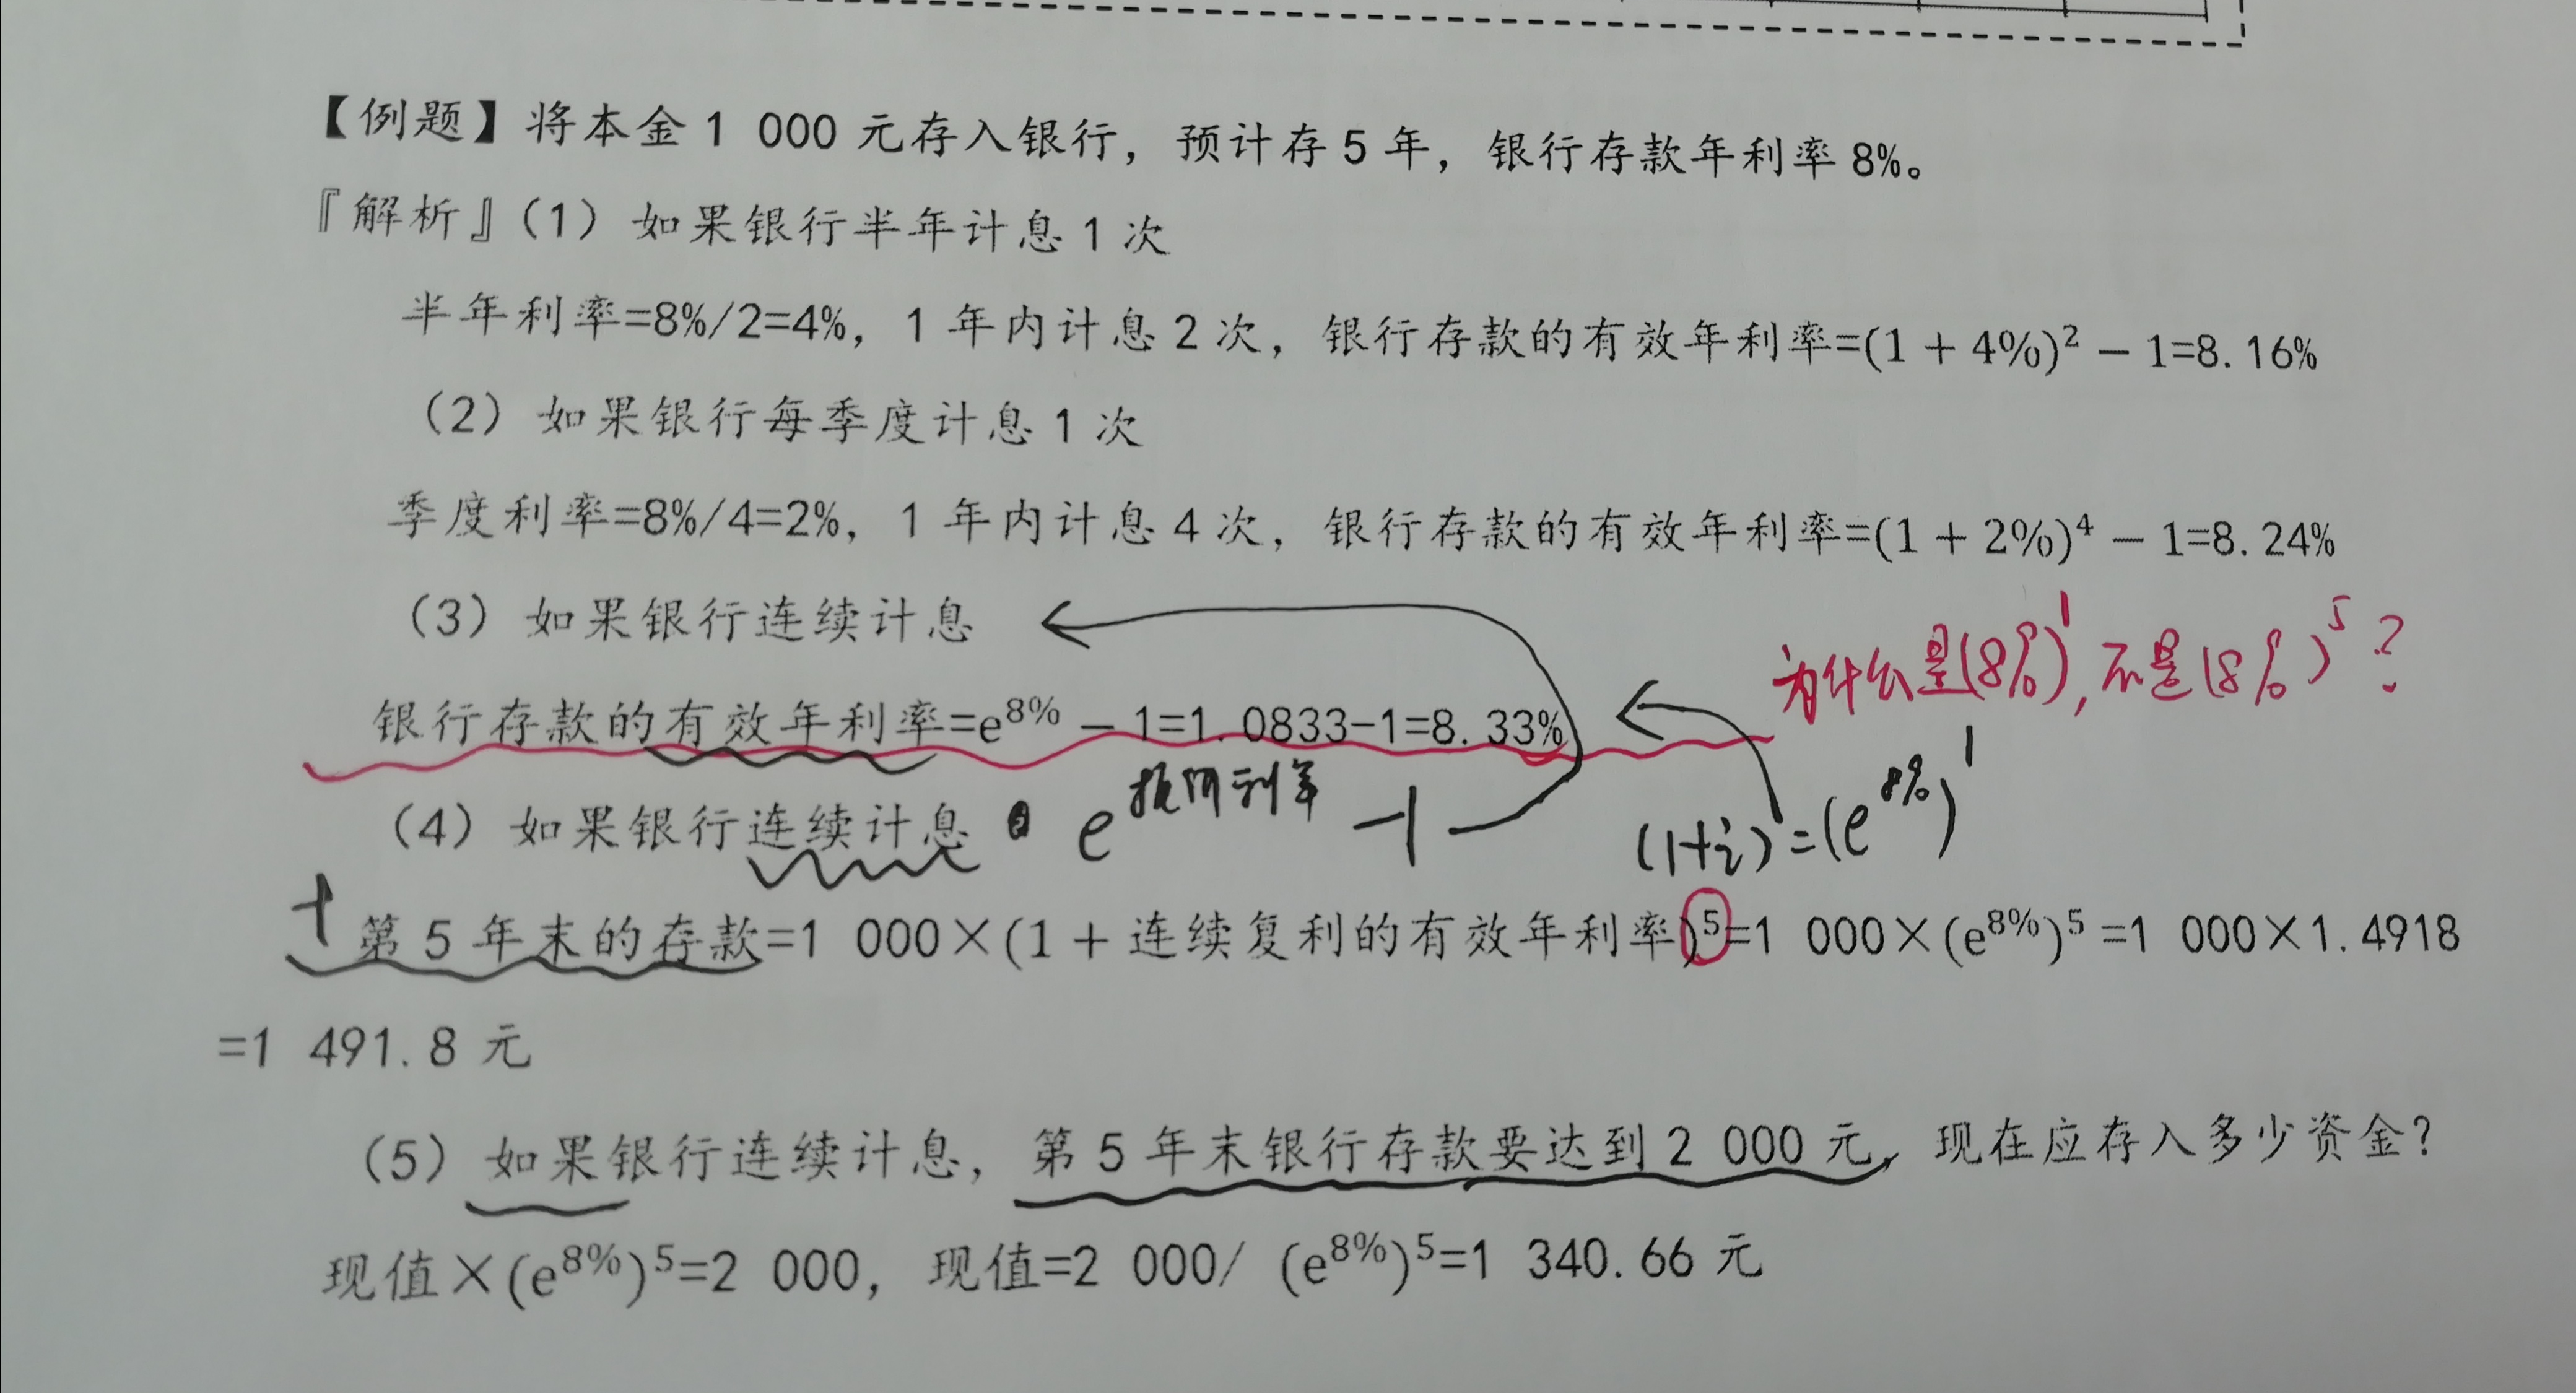 【例题】将本金1 000元存入银行，预计存5年，银行存款年利率8%。
『解析』（1）如果银行半年计息1次
半年利率=8%/2=4%，1年内计息2次，银行存款的有效年利率=(1 + 4%)² − 1=8.16%
（2）如果银行每季度计息1次
季度利率=8%/4=2%，1年内计息4次，银行存款的有效年利率=(1 + 2%)⁴ − 1=8.24%
（3）如果银行连续计息
为什么是(8%)¹,不是(8%)⁵?
银行存款的有效年利率=e^8% − 1=1.0833-1=8.33%
（4）如果银行连续计息
e^报价利率 -1
(1+i)¹=(e^8%)¹
第5年末的存款=1 000×(1 + 连续复利的有效年利率)⁵=1 000×(e^8%)⁵=1 000×1.4918
=1 491.8元
（5）如果银行连续计息，第5年末银行存款要达到2 000元，现在应存入多少资金？
现值×(e^8%)⁵=2 000，现值=2 000/ (e^8%)⁵=1 340.66元